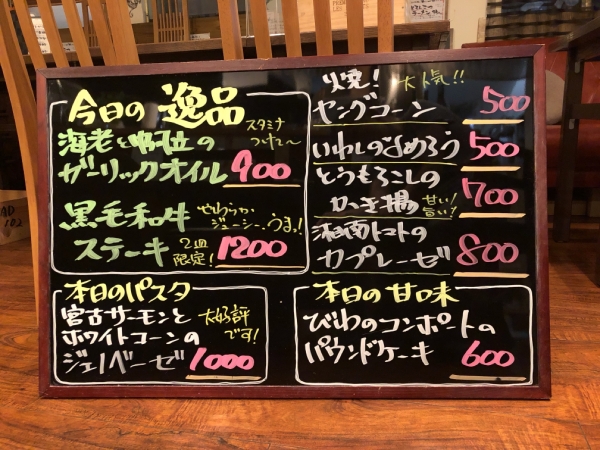 今日の 逸品
海老と帆立の
ガーリックオイル 900
スタミナ
つけて〜
黒毛和牛
ステーキ
やわらか
ジューシー、うまっ!
2皿
限定! 1200
火焼! 大人気!!
ヤングコーン 500
いわしのなめろう 500
とうもろこしの
かき揚 700
甘い!
旨い!
湘南トマトの
カプレーゼ 800
本日のパスタ
宮古サーモンと
ホワイトコーンの
ジェノベーゼ 1000
大好評
です!
本日の甘口味
びわのコンポートの
パウンドケーキ 600